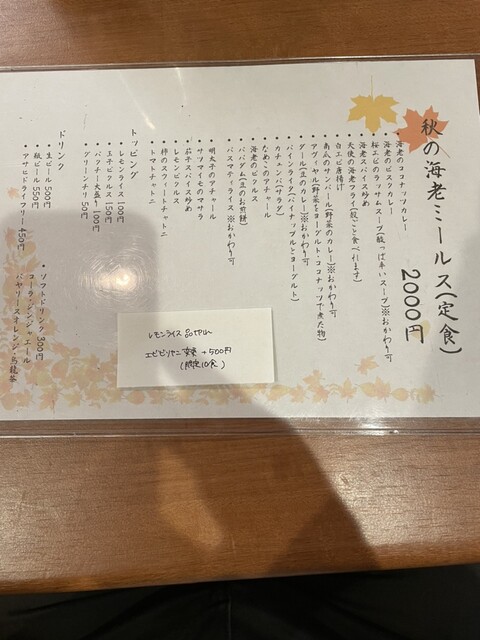 秋の海老ミールス(定食)
2000円
・海老のココナッツカレー
・海老のビスクカレー
・桜エビのラッサムスープ(酸っぱ辛いスープ)※おかわり可
・海老スパイス炒め
・天使の海老フライ(殻ごと食べれます)
・白エビ唐揚げ
・南瓜のサンバール(野菜のカレー)※おかわり可
・アヴィヤル(野菜をヨーグルト・ココナッツで煮た物)
・ダール(豆のカレー)※おかわり可
・パインライタ(パイナップルとヨーグルト)
・カチュンバ(サラダ)
・なめこのアチャール
・海老のピクルス
・パパダム(豆のお煎餅)
・バスマティライス ※おかわり可
トッピング
・明太子のアチャール
・サツマイモのマサラ
・茄子スパイス炒め
・レモンピクルス
・柿のスウィートチャトニ
・トマトチャトニ
・レモンライス 100円
・玉子ピクルス 150円
・パクチー大盛り 100円
・グリーンチリ 50円
ドリンク
・生ビール 500円
・瓶ビール 550円
・アサヒドライフリー 450円
・ソフトドリンク 300円
コーラ・ジンジャーエール
バヤリースオレンジ・烏龍茶
レモンライス
エビビリヤニ変更 +500円
(限定10食)